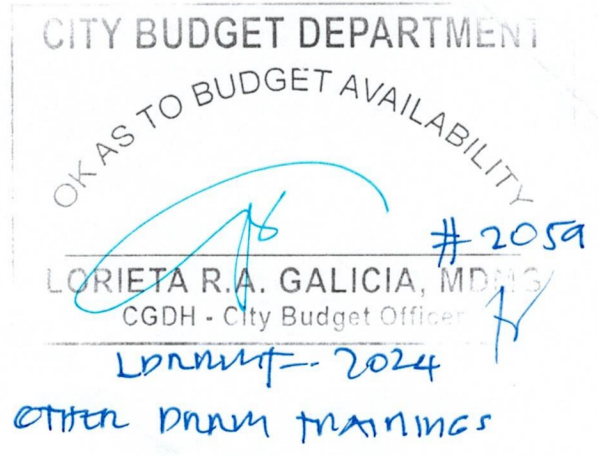 CITY BUDGET DEPARTMENT
OK AS TO BUDGET AVAILABILITY
#2059
LORIETA R.A. GALICIA, MDMG
CGDH - City Budget Officer
LDRRMF- 2024
OTHER DRRM TRAININGS